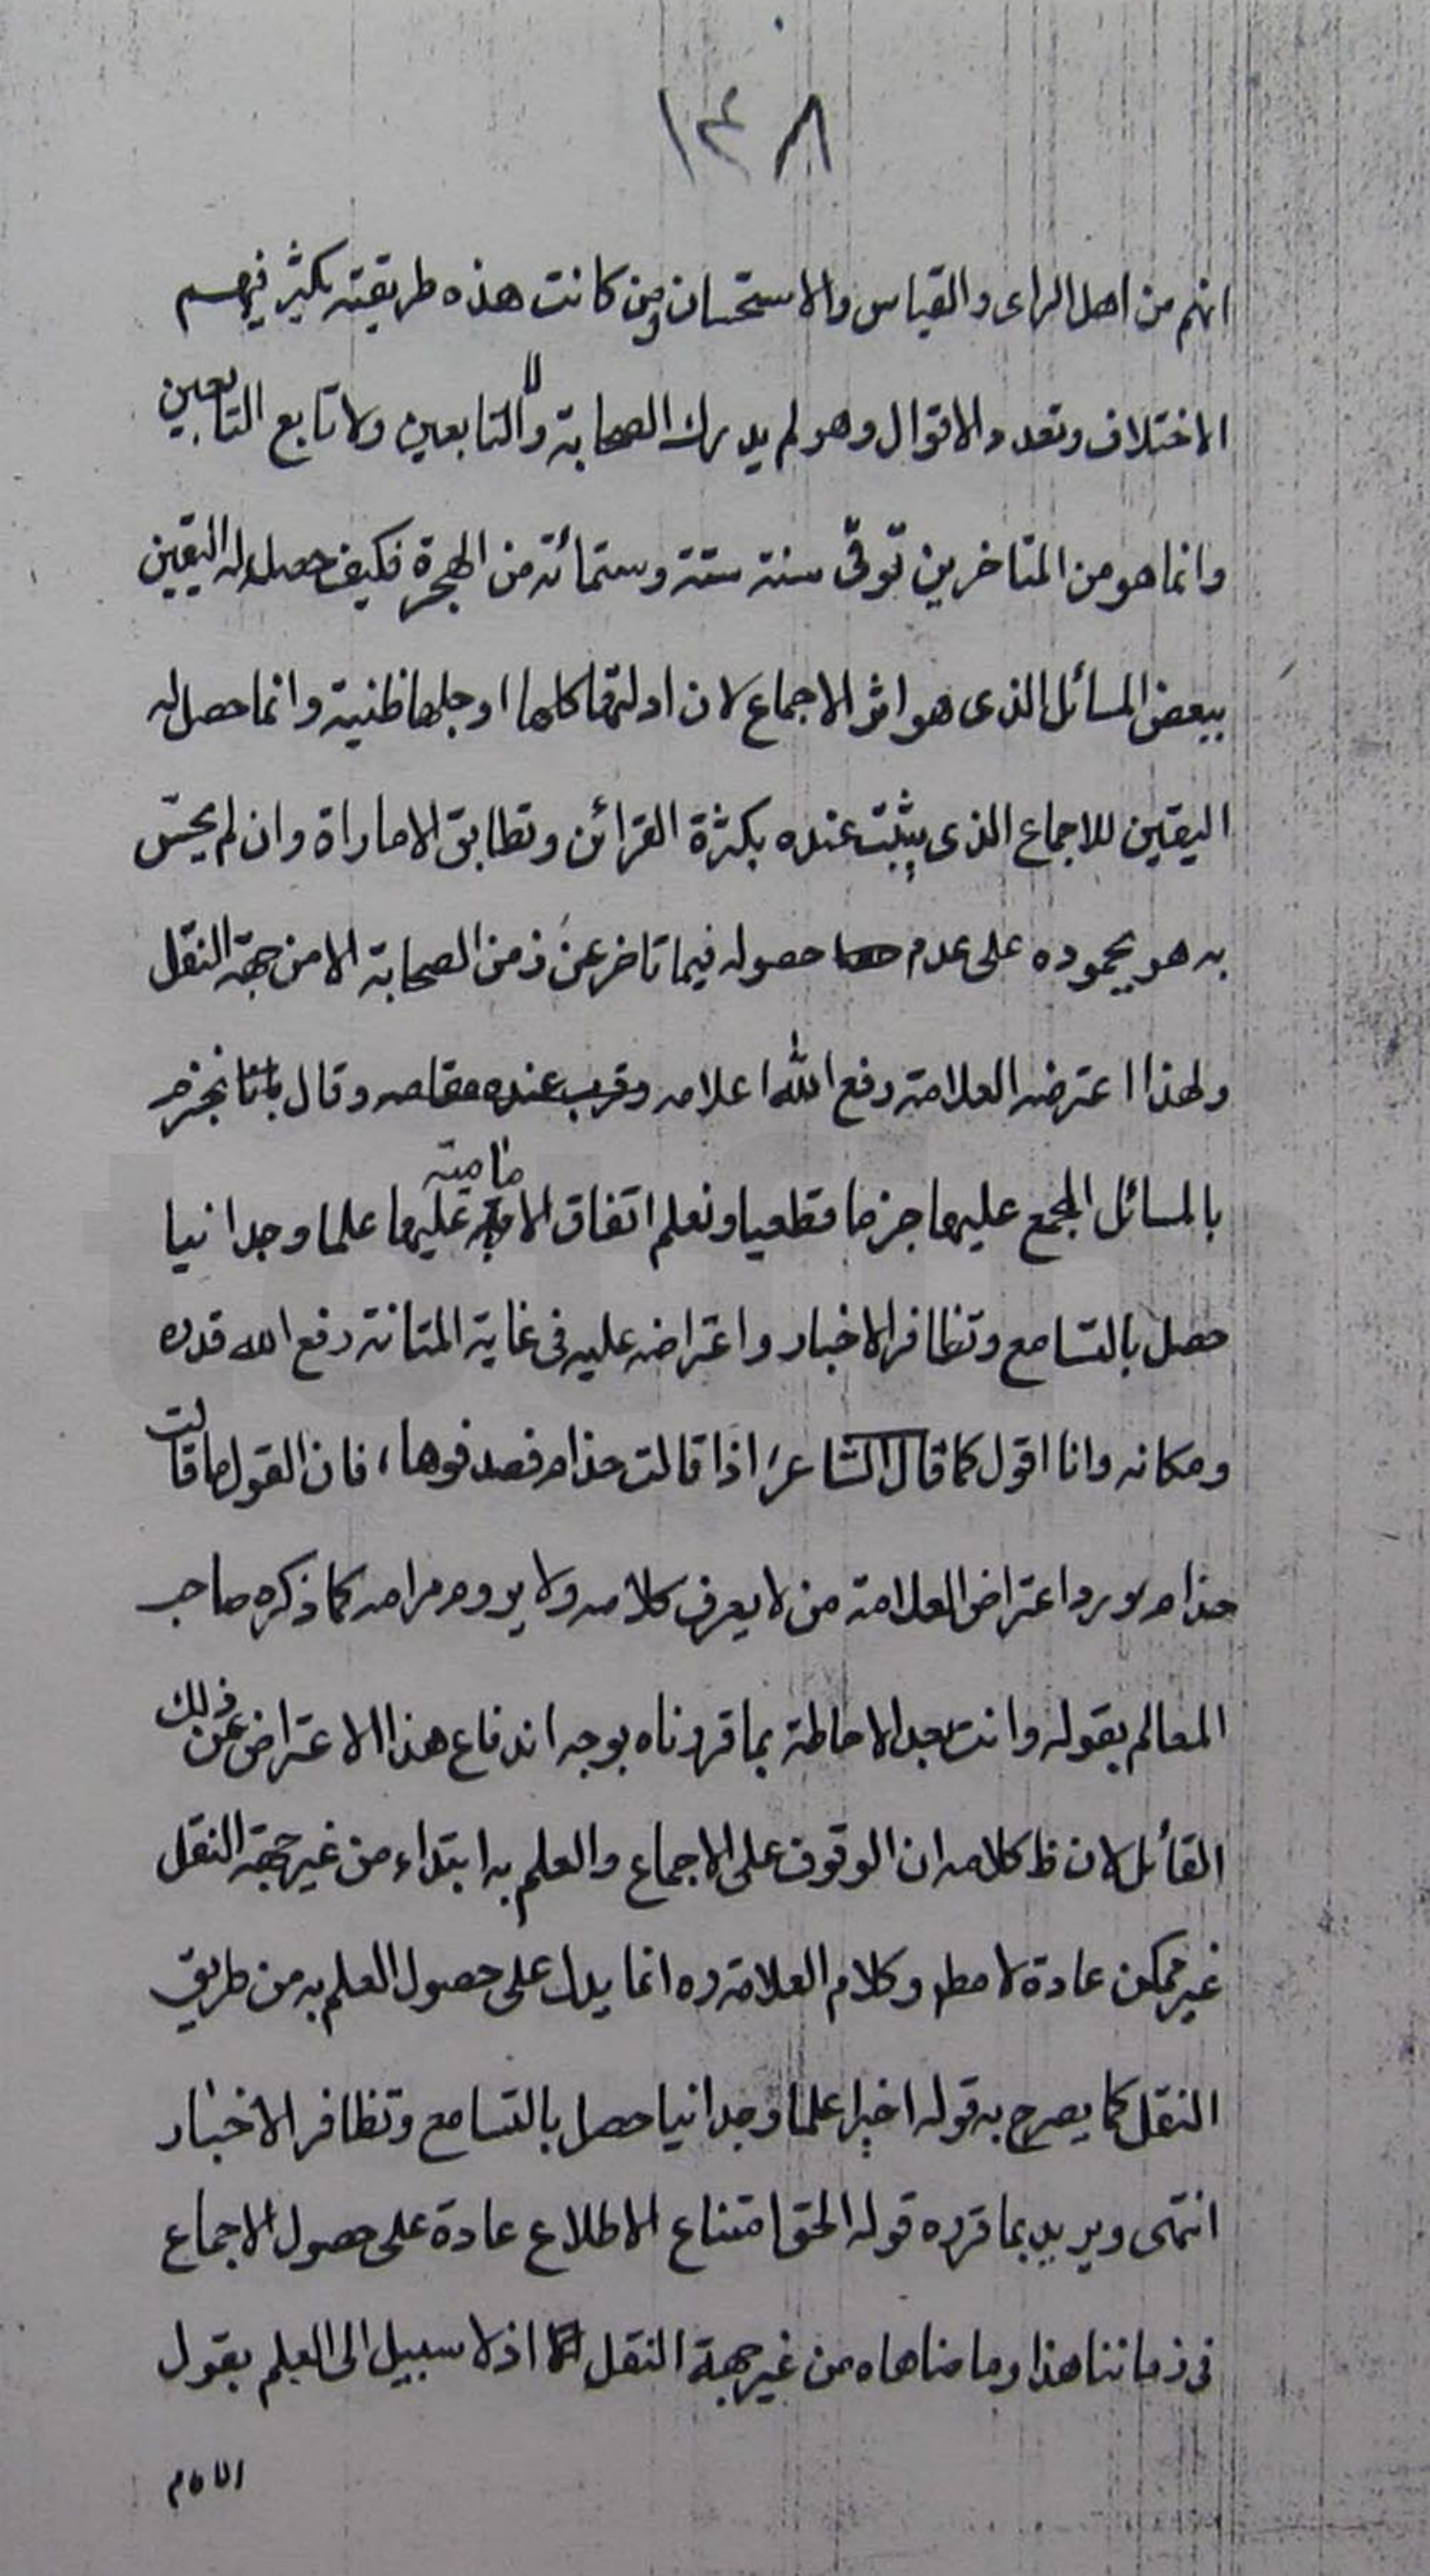 ١٤٨
انهم من اهل الراى والقياس والاستحسان ومن كانت هذه طريقته يكثر فيهم
الاختلاف وتعدد الاقوال وهو لم يدرك الصحابة ولا التابعين ولا تابع التابعين
وانما هو من المتاخرين توفّى سنة ستة وستمأئة من الهجرة فكيف حصل له اليقين
ببعض المسائل الذى هو اثر الاجماع لان ادلتها كلها او جلها ظنية وانما حصل له
اليقين للاجماع الذى يثبت عنده بكثرة القرائن وتطابق الاماراة وان لم يحسّ
به هو بجموده على عدم حصوله فيما تاخر عن زمن الصحابة الا من جهة النقل
ولهذا اعترضه العلامة رفع الله اعلامه وقرب عنده مقامه وقال باننا نجزم
بالمسائل المجمع عليها جزما قطعيا ونعلم اتفاق الامامية عليها علما وجدانيا
حصل بالتسامع وتظافر الاخبار واعتراضه عليه فى غاية المتانة رفع الله قدره
ومكانه وانا اقول كما قال الشاعر اذا قالت حذام فصدقوها، فان القول ما قالت
حذام ويرد اعتراض العلامة من لا يعرف كلامه ولا يروم مرامه كما ذكره صاحب
المعالم بقوله وانت بعد الاحاطة بما قررناه بوجه اندفاع هذا الاعتراض عن ذلك
القائل لان ظ كلامه ان الوقوف على الاجماع والعلم به ابتداء من غير جهة النقل
غير ممكن عادة لا مط وكلام العلامة ره انما يدل على حصول العلم به من طريق
النقل كما يصرح به قوله اخيرا علما وجدانيا حصل بالتسامع وتظافر الاخبار
انتهى ويريد بما قرره قوله الحق امتناع الاطلاع عادة على حصول الاجماع
فى زماننا هذا وما ضاهاه من غير جهة النقل اذ لا سبيل الى العلم بقول
الامام